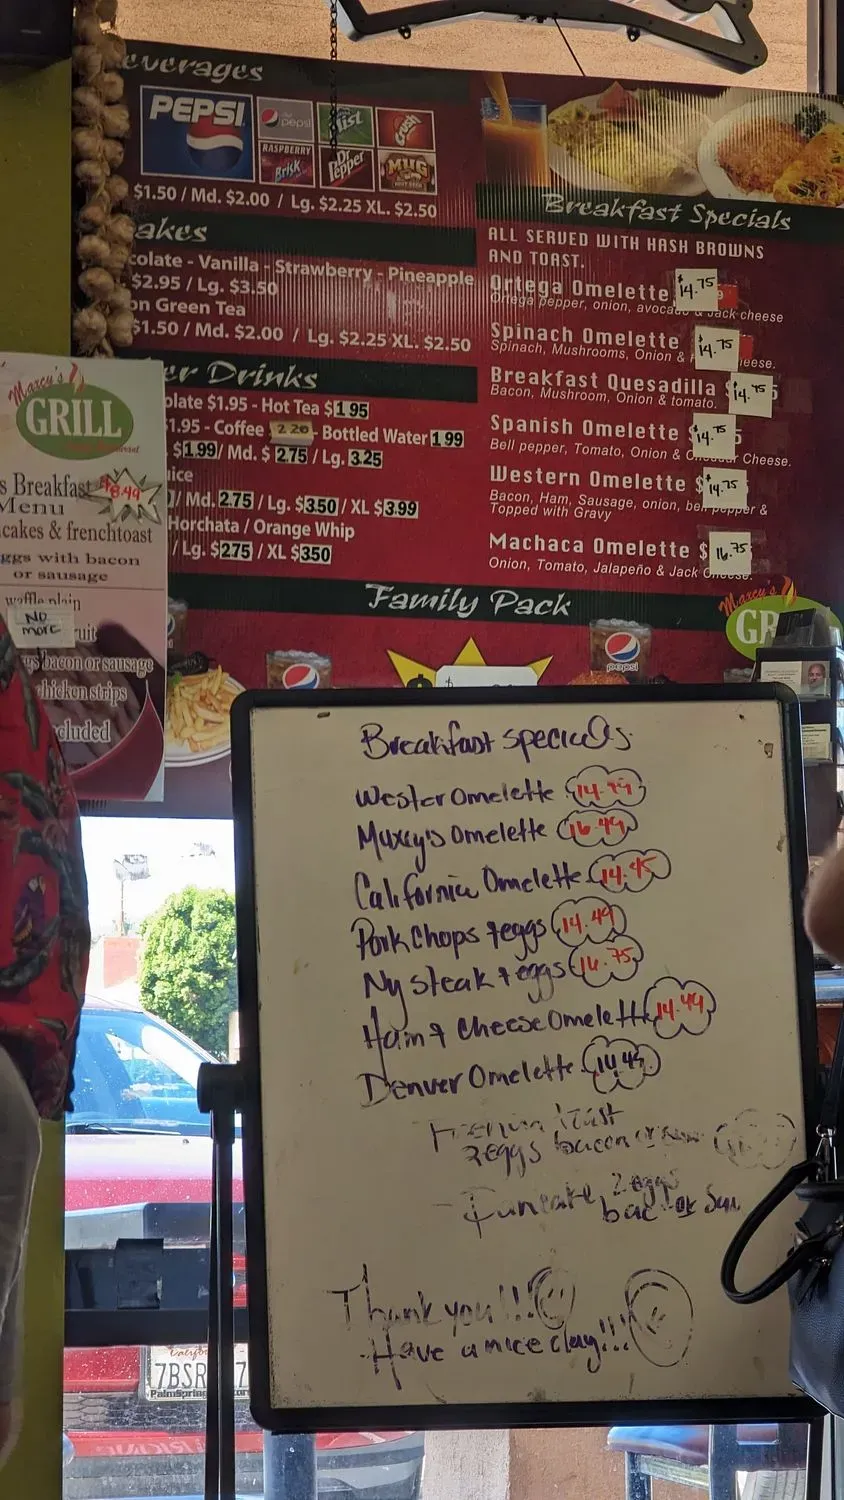 everages
PEPSI
pepsi
Mist
Crush
RASPBERRY
Brisk
Dr Pepper
MUG
ROOT BEER
$1.50 / Md. $2.00 / Lg. $2.25 XL. $2.50
akes
colate - Vanilla - Strawberry - Pineapple
$2.95 / Lg. $3.50
on Green Tea
$1.50 / Md. $2.00 / Lg. $2.25 XL. $2.50
er Drinks
olate $1.95 - Hot Tea $1 95
1.95 - Coffee 2 20 - Bottled Water 1 99
$1.99/ Md. $ 2.75 / Lg. 3.25
uice
/ Md. 2.75 / Lg. $3.50 / XL $3.99
Horchata / Orange Whip
/ Lg. $275 / XL $350
Family Pack
Breakfast Specials
ALL SERVED WITH HASH BROWNS
AND TOAST.
Ortega Omelette $14.75
Ortega pepper, onion, avocado & Jack cheese
Spinach Omelette 14.75
Spinach, Mushrooms, Onion & eese.
Breakfast Quesadilla $14.75
Bacon, Mushroom, Onion & tomato.
Spanish Omelette $14.75
Bell pepper, Tomato, Onion & Cheddar Cheese.
Western Omelette $14.75
Bacon, Ham, Sausage, onion, bell pepper &
Topped with Gravy
Machaca Omelette $16.75
Onion, Tomato, Jalapeño & Jack Cheese.
Maxey's
GR
pepsi
Maxey's
GRILL
s Breakfast $8.49
Menu
cakes & frenchtoast
ggs with bacon
or sausage
waffle plain
NO
more
ruit
gs bacon or sausage
chicken strips
cluded
Breakfast specials
Wester Omelette 14.99
Maxcy's Omelette 16.49
California Omelette 14.45
Pork Chops & eggs 14.49
Ny steak & eggs 16.75
Ham & Cheese Omelette 14.49
Denver Omelette 14.45
2 eggs bacon or
Pancake 2 eggs
bac or Sau
Thank you!!!
Have a nice day!!!
7BSR 7
PalmSprings